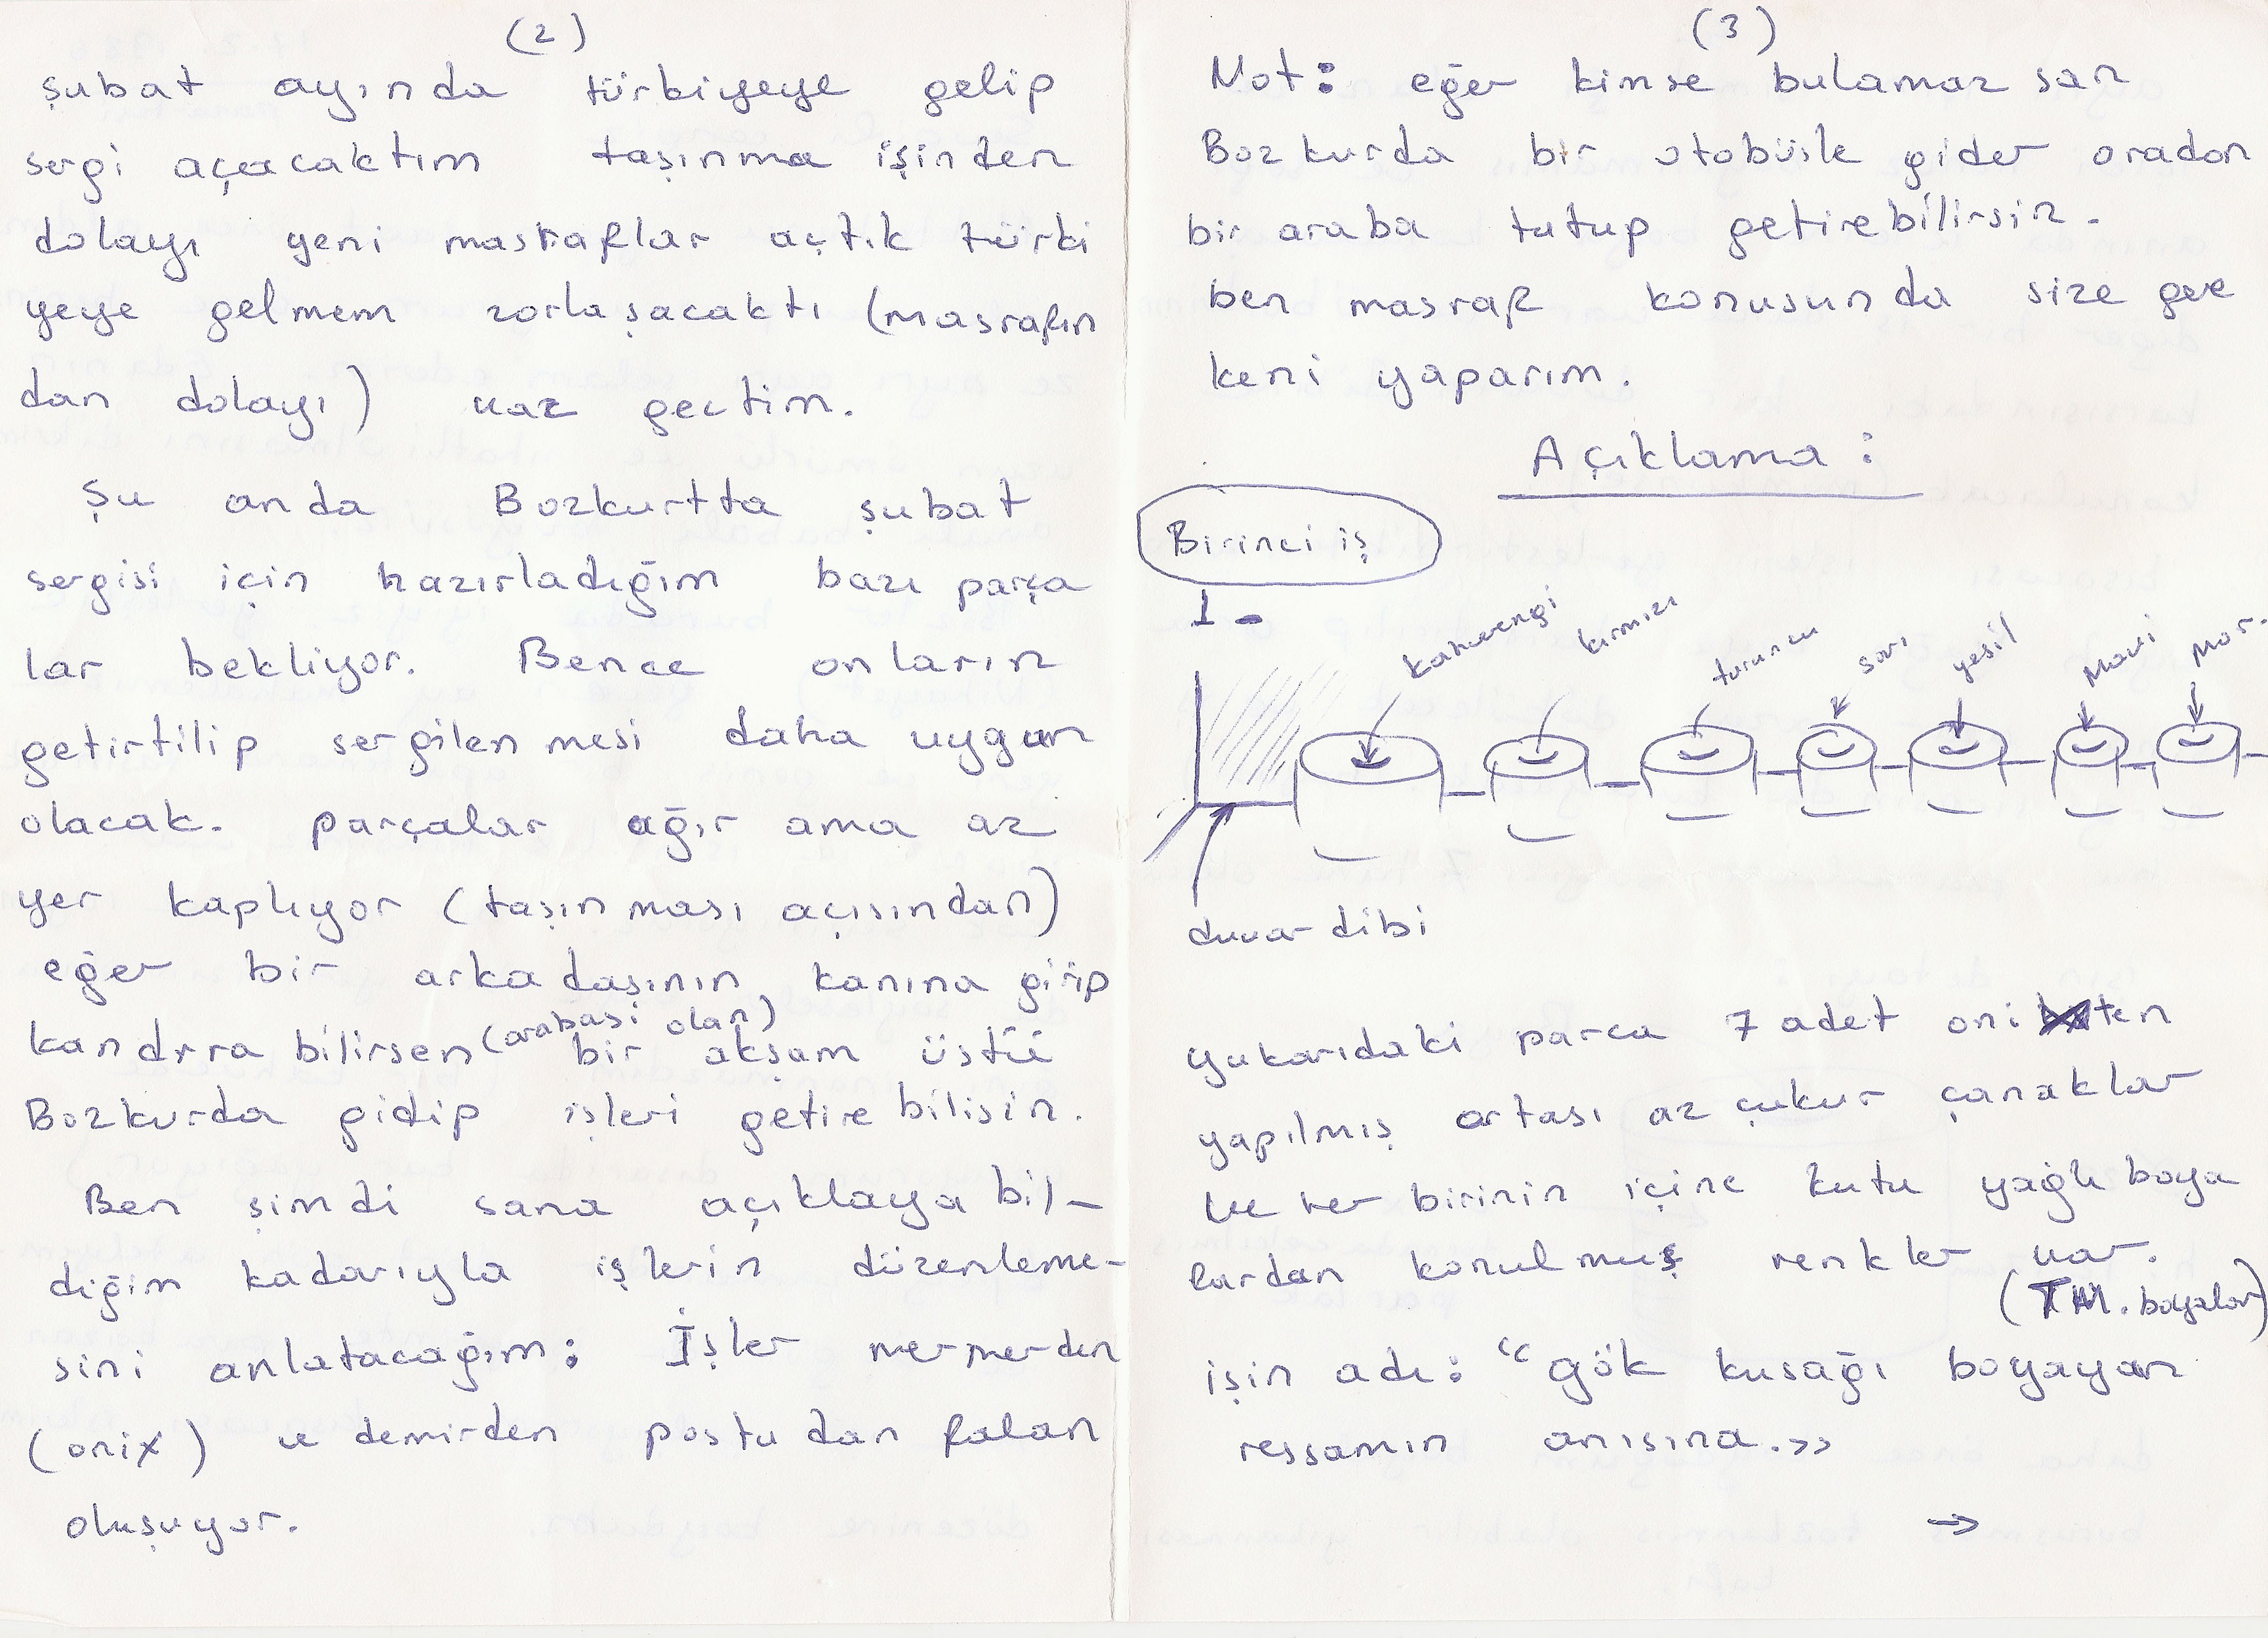 (2)
şubat ayında türkiyeye gelip
sergi açacaktım taşınma işinden
dolayı yeni masraflar açtık türki
yeye gelmem zorlaşacaktı (masrafın
dan dolayı) vaz gectim.
Şu anda Bozkurtta şubat
sergisi için hazırladığım bazı parça
lar bekliyor. Bence onların
getirtilip sergilenmesi daha uygun
olacak. parçalar ağır ama az
yer kaplıyor (taşınması açısından)
eğer bir arkadaşının kanına girip
kandıra bilirsen (arabası olan) bir akşam üstü
Bozkurda gidip işleri getire bilisin.
Ben şimdi sana açıklaya bil-
diğim kadarıyla işlerin düzenleme-
sini anlatacağım: İşler mermerden
(onix) ve demirden postu dan falan
oluşuyor.
(3)
Not: eğer kimse bulamaz san
Bozkurda bir otobüsle gider oradan
bir araba tutup getirebilirsin.
ben masraf konusunda size gere
keni yaparım.
Açıklama :
Birinci iş
1-
kahverengi kırmızı turuncu sarı yeşil Mavi Mor.
duvar dibi
yukarıdaki parca 7 adet oni ten
yapılmış ortası az çukur çanaklar
ve her birinin içine kutu yağlı boya
lardan konulmuş renkler var.
(TM. boyalar)
işin adı: “gök kusağı boyayan
ressamın anısına.»
→